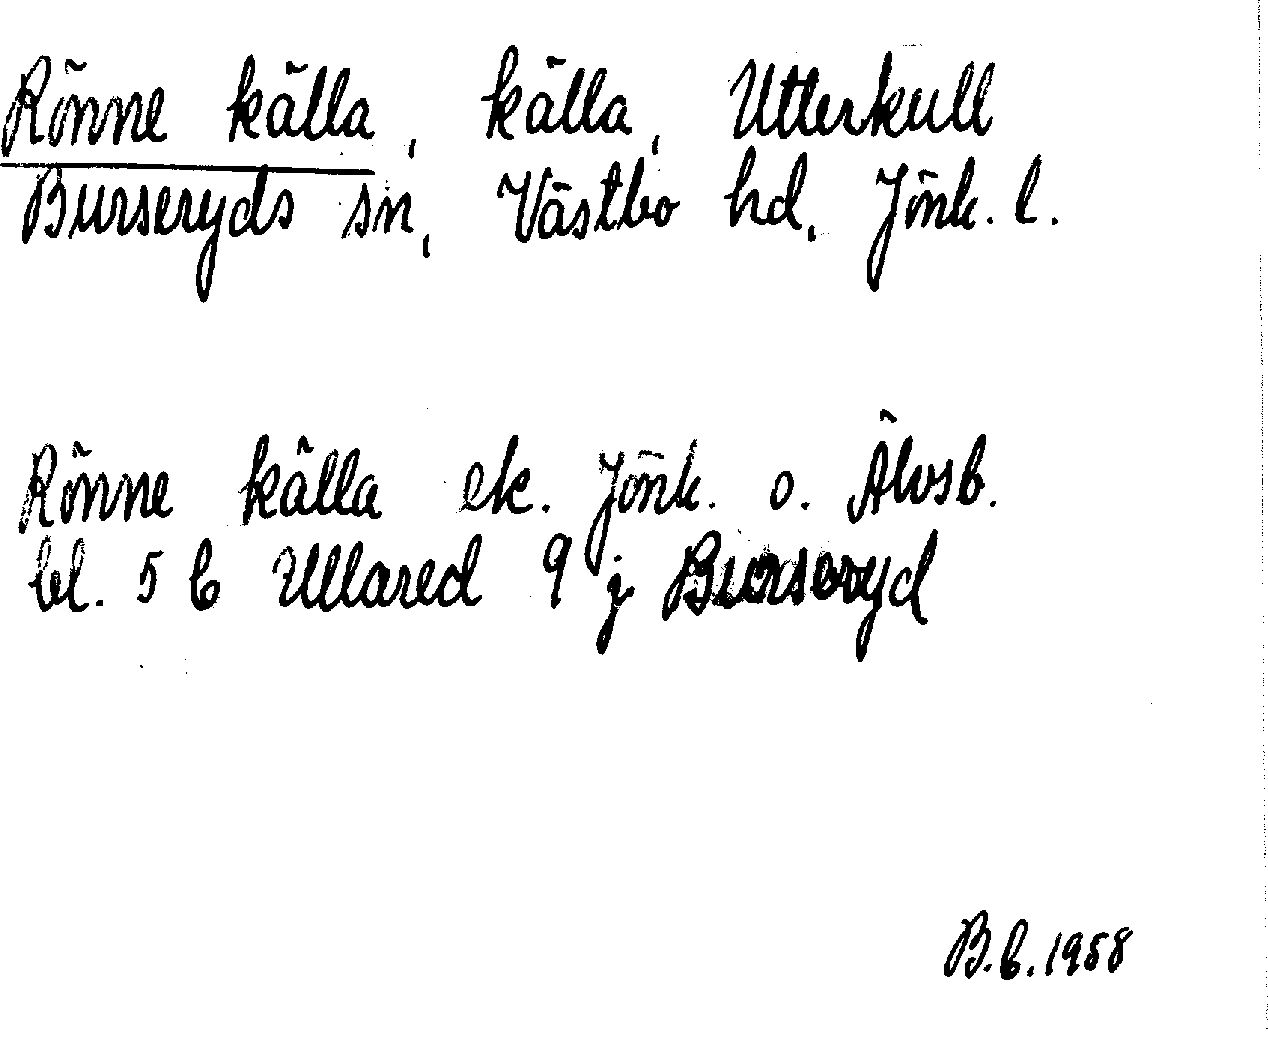 Rönne källa, källa, Utterkull
Burseryds sn, Västbo hd, Jönk. l.
Rönne källa ek. Jönk. o. Älvsb.
bl. 5 b Ullared 9 j Burseryd
B.b. 1958